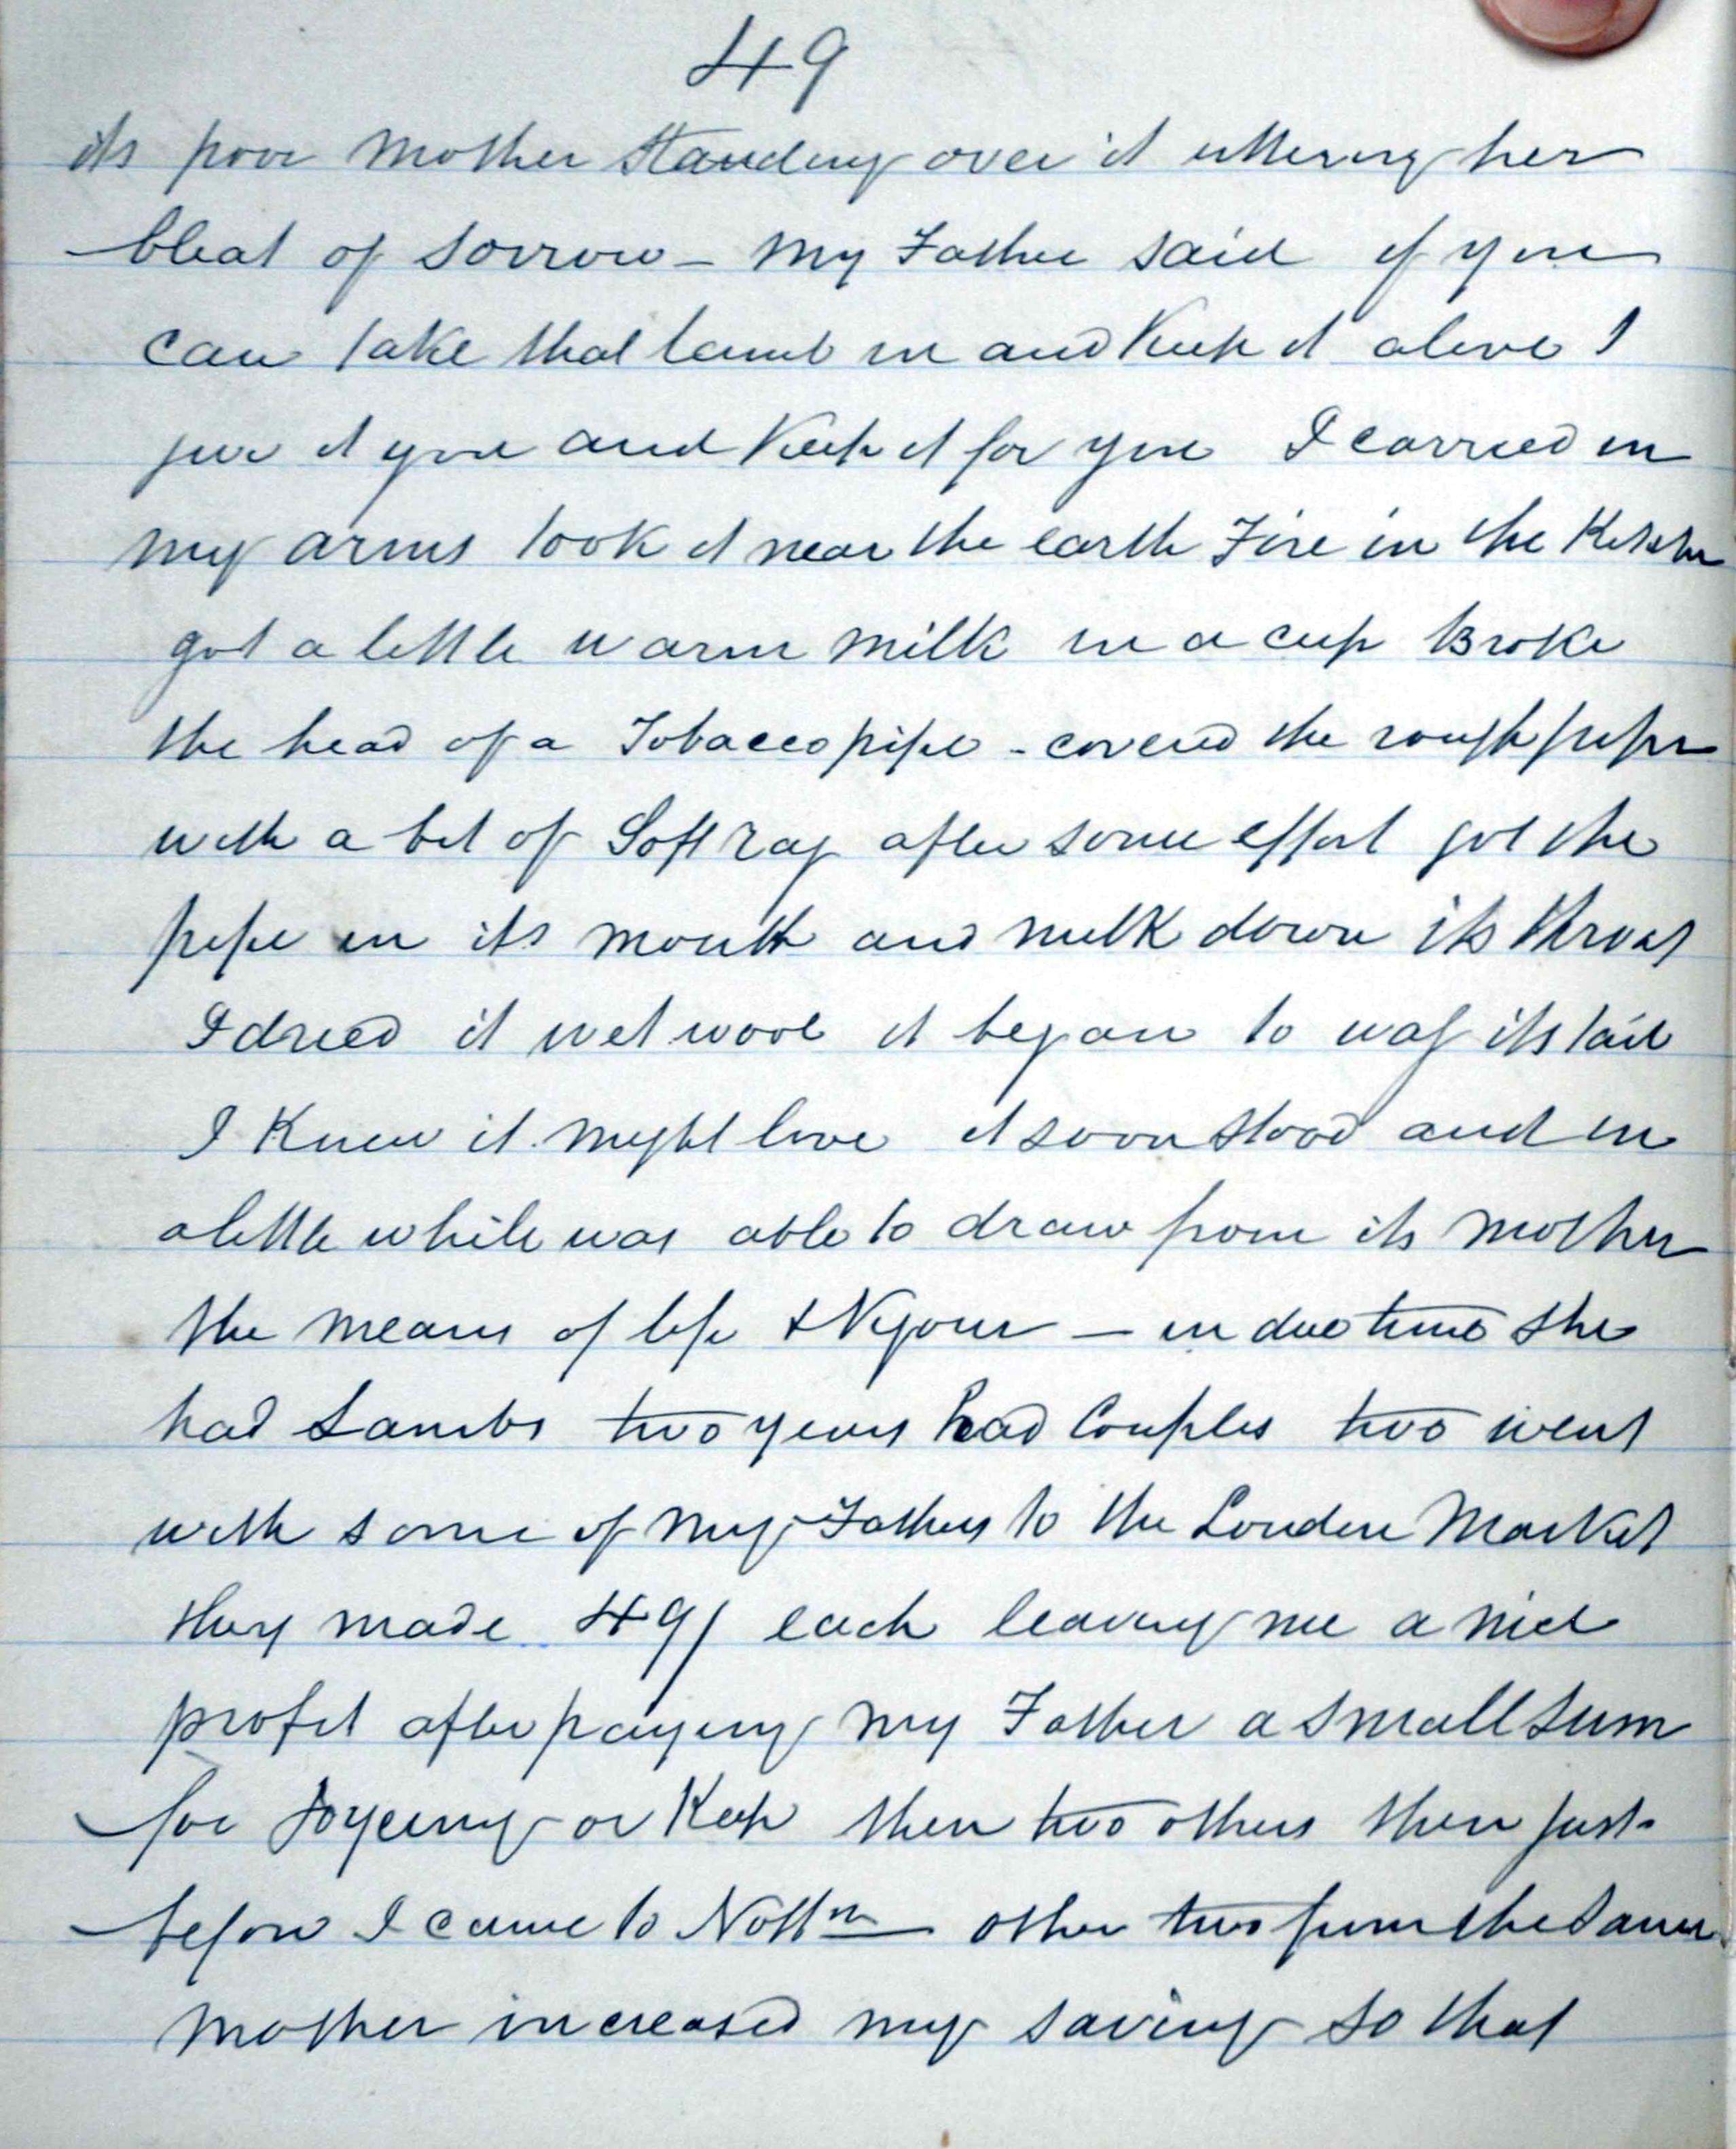 49
its poor Mother Standing over it uttering her
bleat of Sorrow - My Father said if you
can take that lamb in and Keep it alive I
give it you and Keep it for you I carried in
my arms took it near the earth Fire in the Kitchen
got a little warm milk in a cup Broke
the head of a Tobacco pipe - covered the rough pipe
with a bit of Soft rag after some effort got the
pipe in its mouth and milk down its throat
I dried it wet wool it began to wag its tail
I Knew it might live it soon stood and in
a little while was able to draw from its Mother
the means of life & Vigour - in due time she
had Lambs two years had Couples two went
with some of my Fathers to the London Market
they made 49/ each leaving me a nice
profit after paying my Father a small sum
for or Keep then two others then just
before I came to Nottm other two from the same
mother increased my saving so that